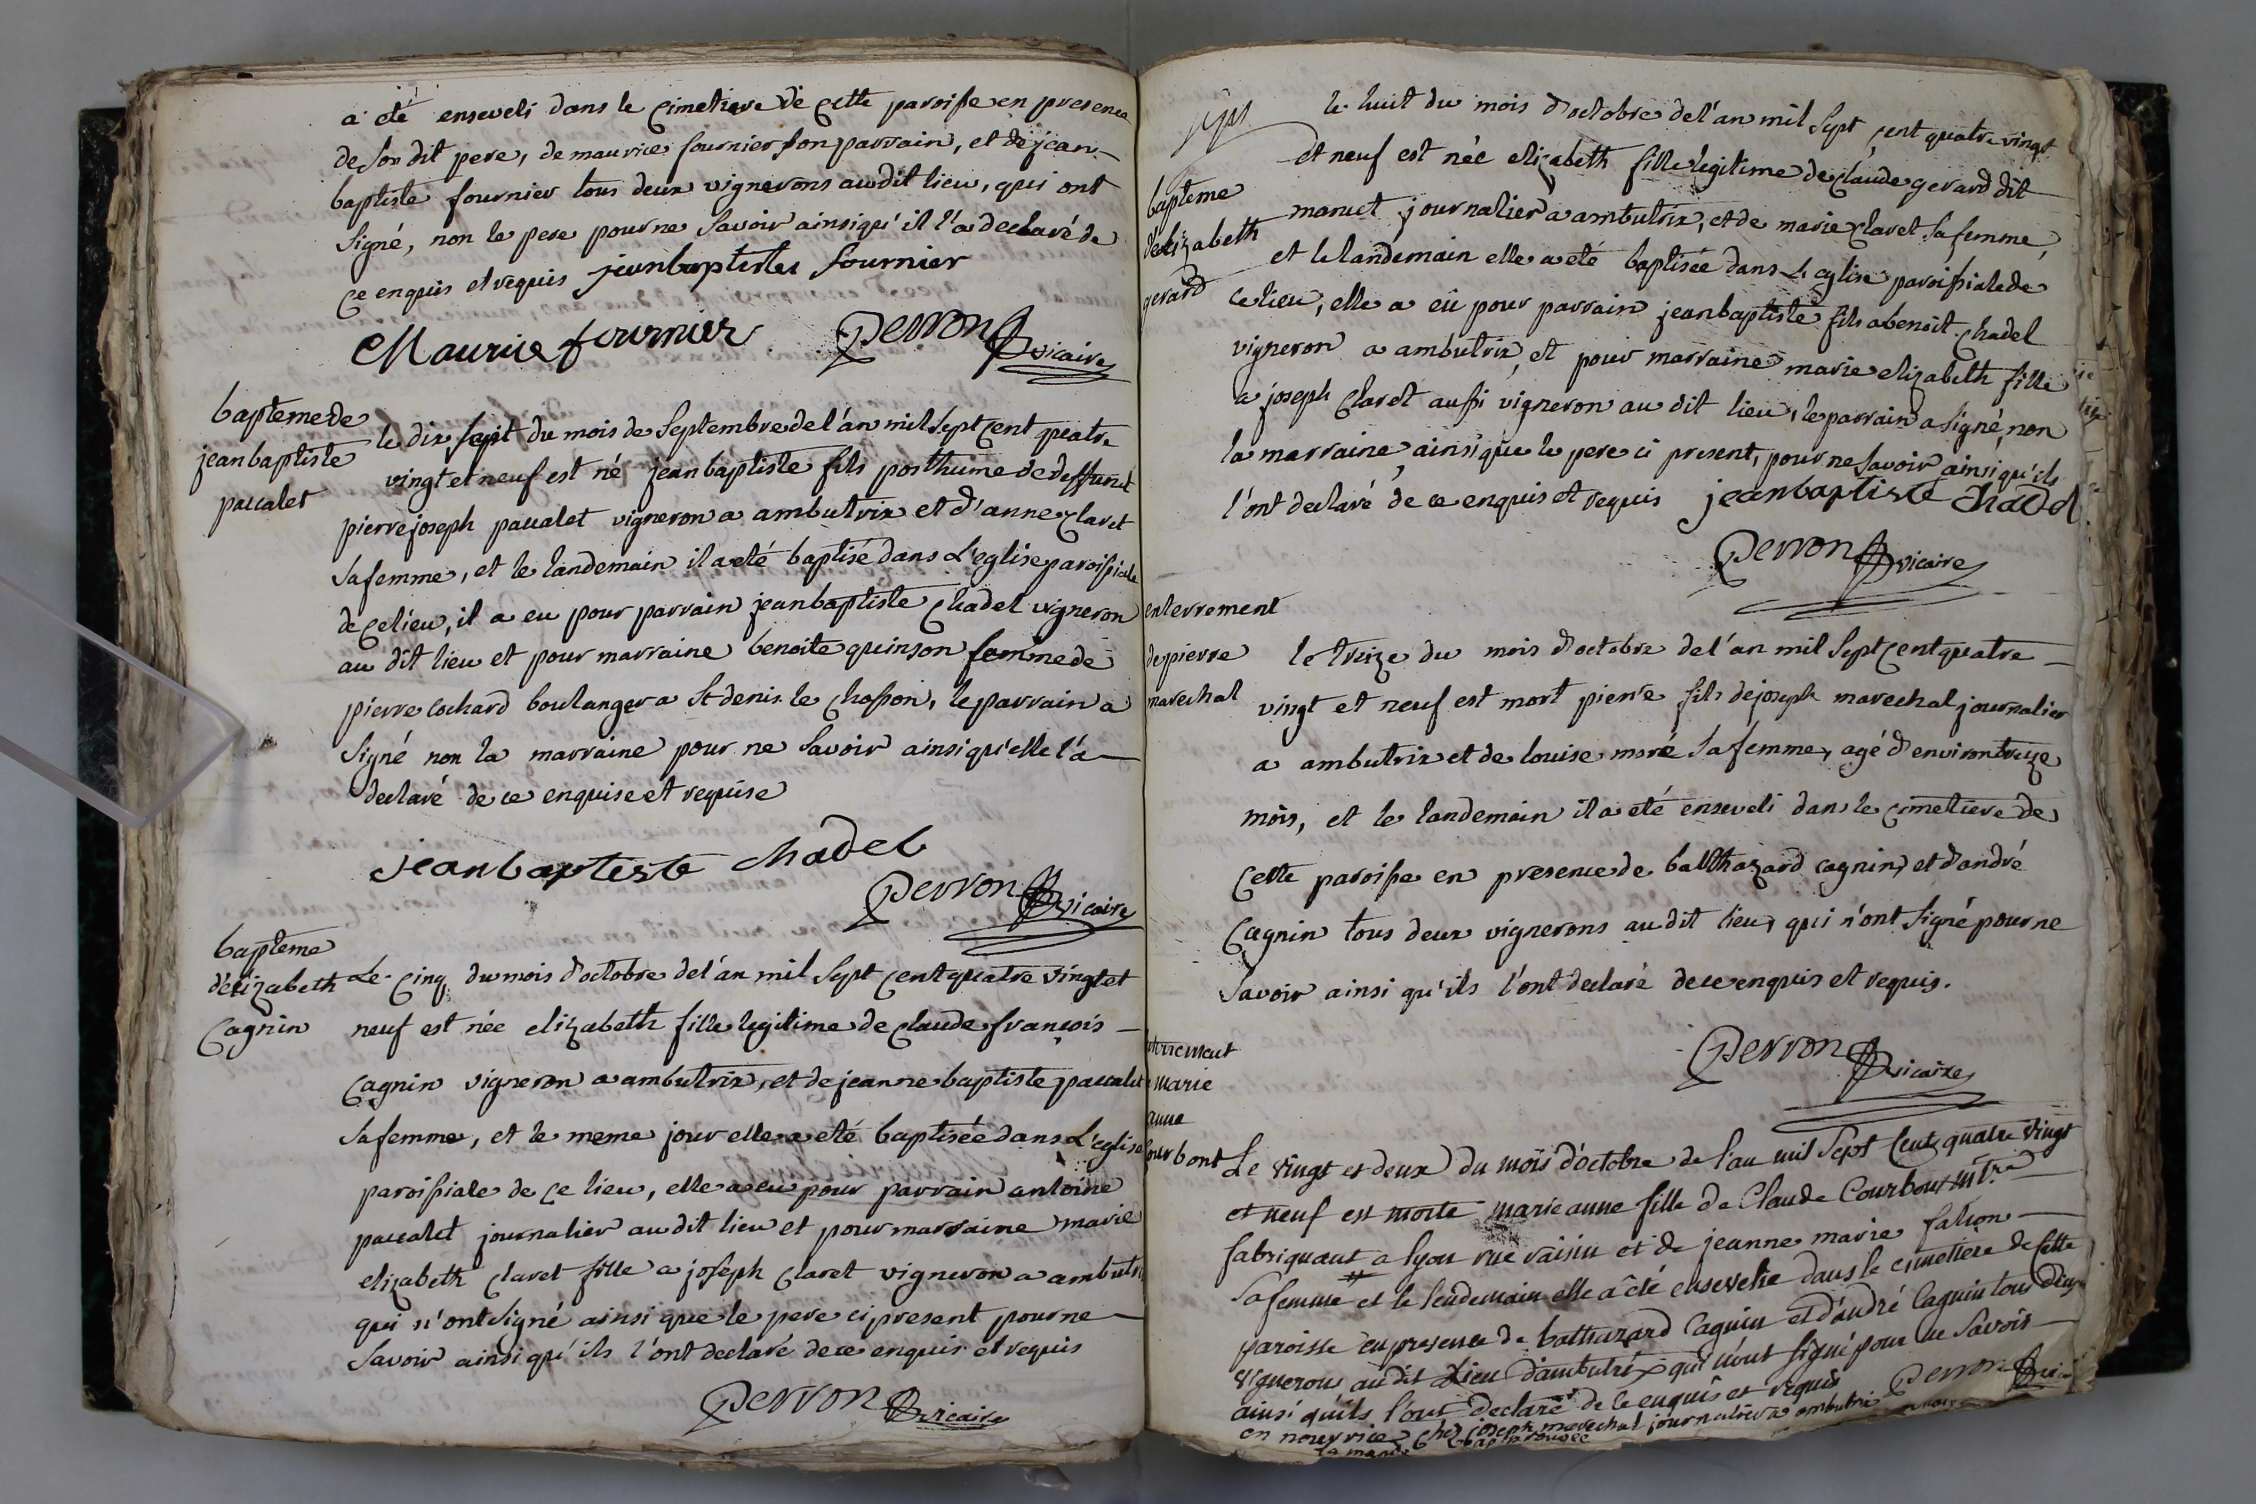 a été enseveli dans le cimetiere de cette paroisse en presence
de son dit pere, de maurice fournier son parrain, et de jean
baptiste fournier tous deux vignerons au dit lieu, qui ont
signé, non le pere pour ne savoir ainsi qu'il l'a declaré de
ce enquis et requis jeanbaptiste fournier
Maurice fournier Perron vicaire
bapteme de
jean baptiste
pacalet
le dix sept du mois de septembre de l'an mil sept cent quatre
vingt et neuf est né jeanbaptiste fils posthume de deffunt
pierre joseph pacalet vigneron a ambutrix et d'anne claret
sa femme, et le landemain il a eté baptisé dans l'eglise paroissiale
de ce lieu, il a eu pour parrain jeanbaptiste chadel vigneron
au dit lieu et pour marraine benoite quinson femme de
pierre cochard boulanger a st denis le chosson, le parrain a
signé non la marraine pour ne savoir ainsi qu'elle l'a
declaré de ce enquise et requise
jeanbapteste chadel
Perron vicaire
bapteme
d'elizabeth
Cagnin
Le cinq du mois d'octobre de l'an mil sept cent quatre vingt et
neuf est née elizabeth fille legitime de claude françois
Cagnin vigneron a ambutrix, et de jeanne baptiste pacalet
sa femme, et le meme jour elle a eté baptisée dans l'eglise
paroissiale de ce lieu, elle a eu pour parrain antoine
pacalet journalier au dit lieu et pour marraine marie
elizabeth claret fille a joseph claret vigneron a ambutri
qui n'ont signé ainsi que le pere ci present pour ne
savoir ainsi qu'ils l'ont declaré de ce enquis et requis
Perron vicaire
bapteme
d'elizabeth
gerard
le huit du mois d'octobre de l'an mil sept cent quatre vingt
et neuf est née elizabeth fille legitime de claude gerard dit
manuet journalier a ambutrix, et de marie claret sa femme,
et le landemain elle a eté baptisée dans l'eglise paroissiale de
ce lieu, elle a eû pour parrain jeanbaptiste fils a benoit chadel
vigneron a ambutrix, et pour marraine marie elizabeth fille
a joseph claret aussi vigneron au dit lieu, le parrain a signé, non
la marraine, ainsi que le pere ci present, pour ne savoir ainsi qu'ils
l'ont declaré de ce enquis et requis jeanbaptiste chadel
Perron vicaire
enterrement
de pierre
marechal
le treize du mois d'octobre de l'an mil sept cent quatre
vingt et neuf est mort pierre fils de joseph marechal journalier
a ambutrix et de louise moré sa femme, agé d'environ treize
mois, et le landemain il a eté enseveli dans le cimetiere de
cette paroisse en presence de balthazard cagnin, et d'andré
Cagnin tous deux vignerons au dit lieu, qui n'ont signé pour ne
savoir ainsi qu'ils l'ont declaré de ce enquis et requis.
Perron vicaire
terrement
marie
anne
courbont
Le vingt et deux du mois d'octobre de l'an mil sept cent quatre vingt
et neuf est morte marie anne fille de Claude Courbout mtre
fabriquant a lyon rue raisin et de jeanne marie falion
sa femme et le lendemain elle a été ensevelie dans le cimetiere de cette
paroisse en presence de balthazard Cagnin et d'andré Cagnin tous deux
vignerons au dit lieu d'ambutrix qui n'ont signé pour ne savoir
ainsi qu'ils l'ont declaré de ce enquis et requis Perron vicai
en nourrice chez joseph marechal journalier a ambutrix